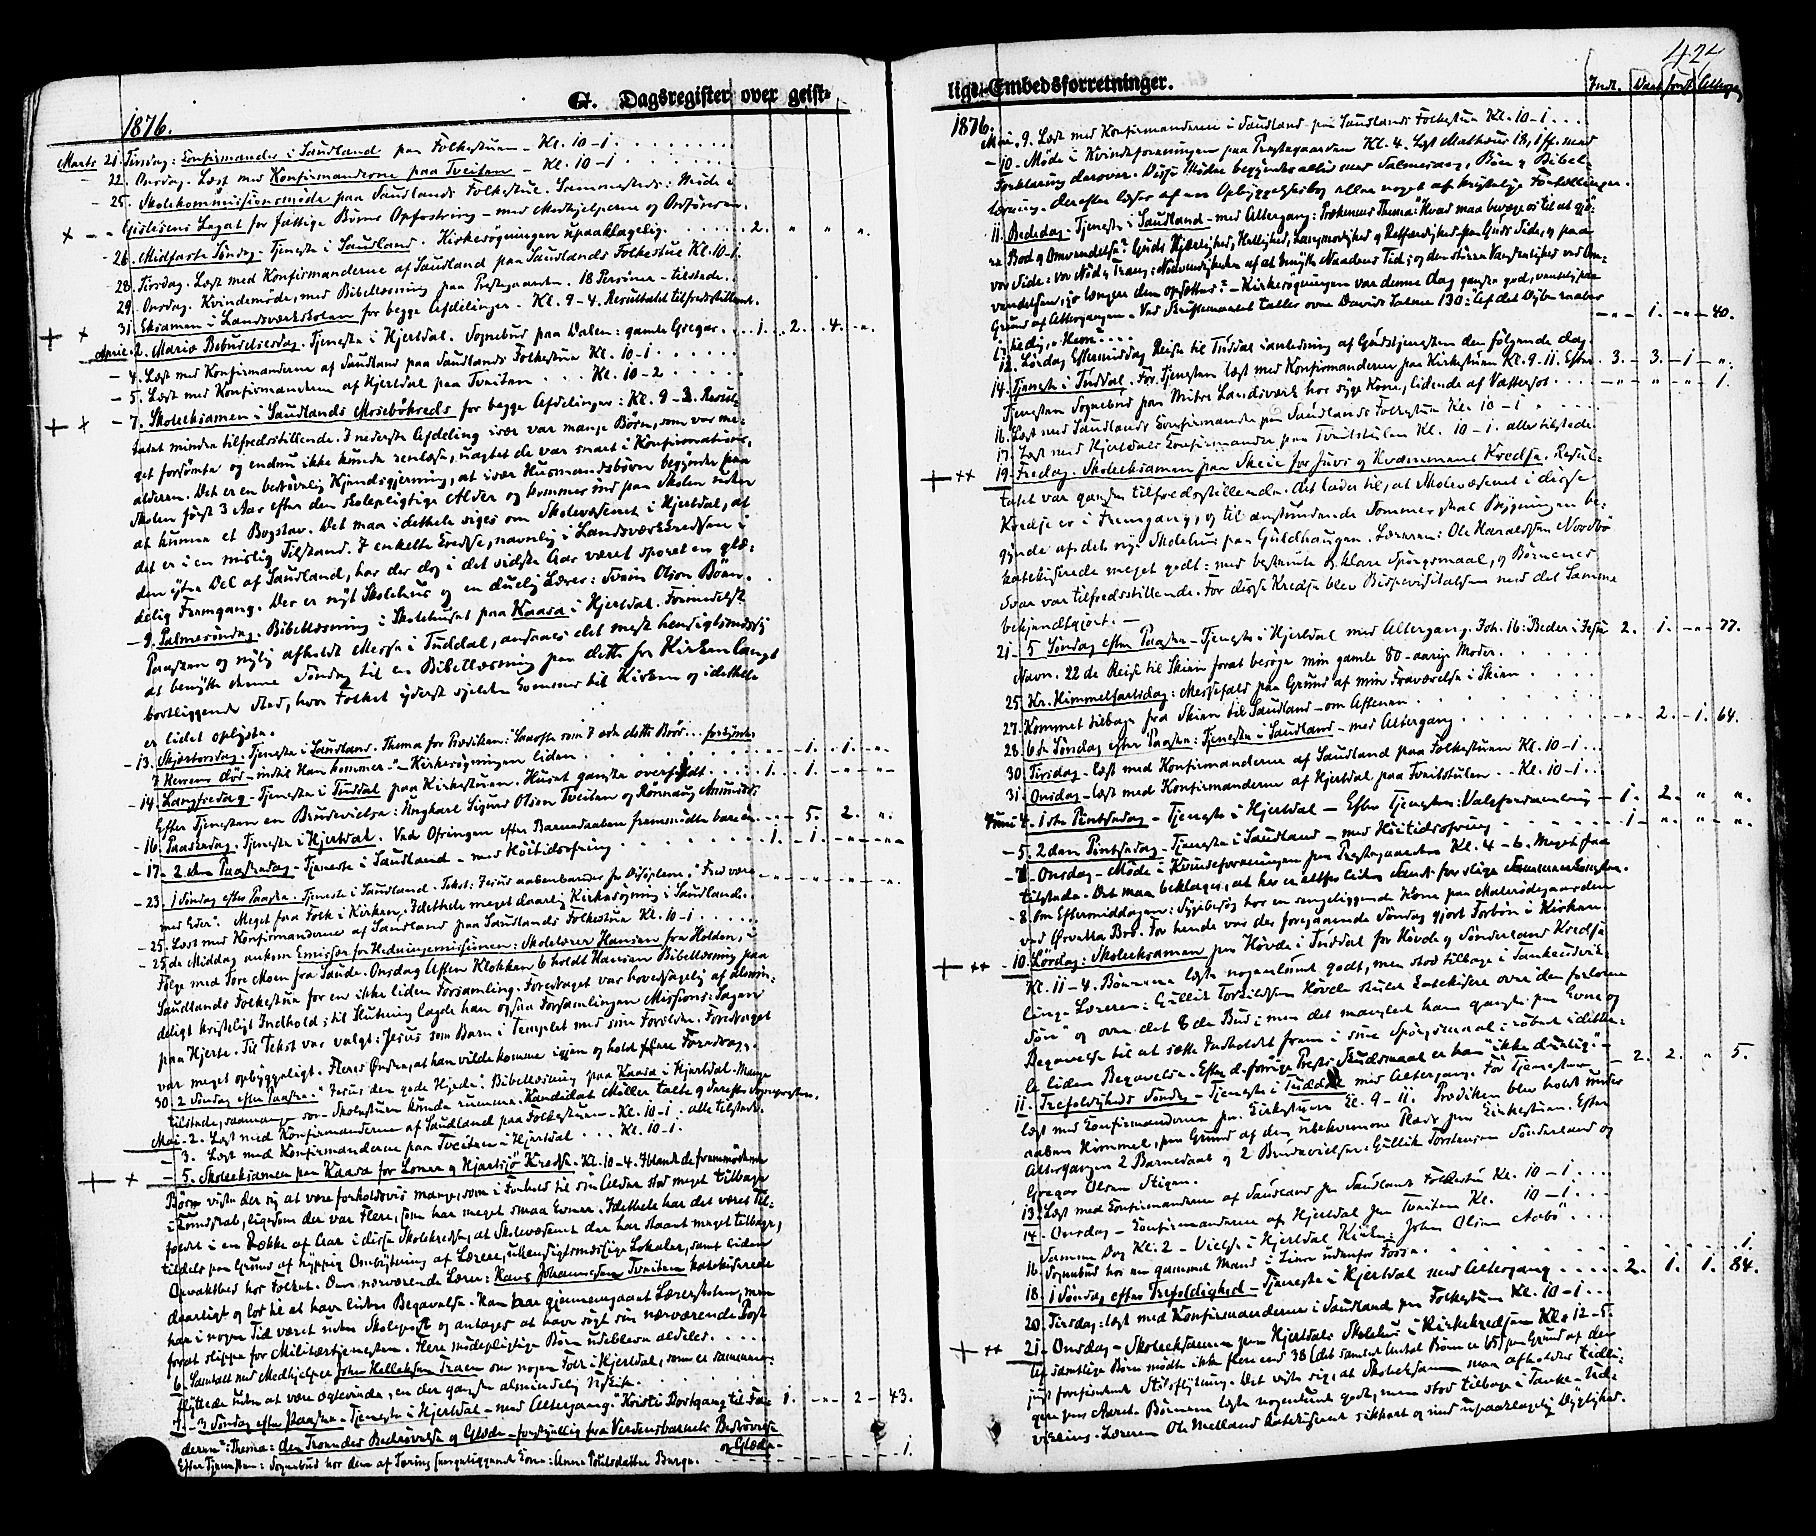 G. Dagsregister over geist-
1876.
Marts 21. Tirsdag: Konfirmander i Saudland paa Folkestuen - Kl. 10-1.
22. Onsdag. Læst med Konfirmanderne paa Tveiten - Kl. 10-1
25. Skolekommissionsmöde paa Saudlands Folkestue. Sammesteds: Möde i
Gislesens Legat for fattige Börns Opfostring - med Medhjelperne og Ordföreren.
26. Midfaste Söndag - Tjeneste i Saudland. Kirkesögningen upaaklagelig. 2. " " "
28. Tirsdag. Læst med Konfirmanderne af Saudland paa Saudlands Folkestue Kl. 10-1.
29. Onsdag. Kvindemöde, med Bibellæsning paa Prestegaarden. 18 Personer tilstede.
31. Eksamen i Landsværkskolen for begge Afdelinger - Kl. 9-4. Resultatet tilfredsstillende.
April 2. Mariæ Bebudelsesdag. Tjeneste i Hjertdal. Sognebud paa Dalen: gamle Gregar. 1. 2. 4. "
4. Læst med Konfirmanderne af Saudland paa Saudlands Folkestue Kl. 10-1
5. Læst med Konfirmanderne af Hjertdal paa Tveiten . . . Kl. 10-2
7. Skoleeksamen i Saudlands Mosebökreds for begge Afdelinger: Kl. 9-3. Resul-
tatet mindre tilfredsstillende. I nederste Afdeling især var mange Börn, som var me-
get forsömte og endnu ikke kunde renlæse, uagtet de var snart i Konfirmations-
alderen. Det er en bedrövelig Kjendsgjerning, at især Husmandsbörn begynder paa
Skolen först 3 Aar efter den skolepligtige Alder og kommer ind paa Skolen uden
at kunne et Bogstav. Det maa i det hele siges om Skolevæsenet i Hjertdal, at
det er i en mislig Tilstand. I enkelte Kredse, navnlig i Landsværkkredsen i
den ytre Del af Saudland, har der dog i det sidste Aar været sporet en glæ-
delig Fremgang. Der er nyt Skolehus og en duelig Lærer: Svein Olsen Böen.
9. Palmesöndag. Bibellæsning i Skolehuset paa Kaasa i Hjertdal. Formedelst
Paasken og nylig afholdt Messe i Tuddal, ansaaes det mest hensigtsmæssig
at benytte denne Söndag til en Bibellæsning paa dette fra Kirken langt
bortliggende Sted, hvor Folket yderst sjelden kommer til Kirken og i det hele
er lidet oplyste.
13. Skjærtorsdag. Tjeneste i Saudland. Thema for Prædiken: "Saaofte som I æde dette Bröd . . forkynder
I Herrens Död - indtil Han kommer" - Kirkesögningen liden. 1. 1. "
14. Langfredag - Tjeneste i Tuddal paa Kirkestuen. Huset ganske overfyldt. 1. 1. " "
Efter Tjenesten en Brudevielse: Ungkarl Sigurd Olsen Tveiten og Rönnaug Amunds-
16. Paaskedag. Tjeneste i Hjertdal. Ved Ofringen efter Barnedaaben fremmödte bare én. 5. 2. "
17. 2den Paaskedag - Tjeneste i Saudland - med Höitidsofring 1. 1. " "
23. 1 Söndag efter Paaske. Tjeneste i Saudland. Tekst: Jesus aabenbares for Disiplene: "Fred være
med Eder". Meget faa Folk i Kirken. I det hele meget daarlig Kirkesögning i Saudland.
25. Læst med Konfirmanderne af Saudland paa Saudlands Folkestue Kl. 10-1
25de Middag ankom Emissær for Hedningemissionen: Skolelærer Hansen fra Holden, i
Fölge med Tore Moen fra Saude. Onsdag Aften Klokken 6 holdt Hansen Bibellæsning paa
Saudlands Folkestue for en ikke liden Forsamling. Foredraget var hovedsagelig af almin-
deligt kristeligt Indhold; til Slutning lagde han ogsaa Forsamlingen Missions-Sagen
paa Hjerte. Til Tekst var valgt: Jesus som Barn i Templet med sine Forældre. Foredraget
var meget opbyggeligt. Flere önskede, at han vilde komme igjen og holde flere Foredrag.
30. 2 Söndag efter Paaske: "Jesus den gode Hyrde". Bibellæsning paa Kaasa i Hjertdal. Mange
tilstede, saamange som Skolestuen kunde rumme. Kandidat Möller talte og derefter Sognepresten.
Mai 2. Læst med Konfirmanderne af Saudland paa Folkestuen - Kl. 10-1. alle tilstede.
3. Læst med Konfirmanderne paa Tveiten i Hjertdal . . . Kl. 10-1.
5. Skoleeksamen paa Kaasa for Lonar og Hjartsjö Kredse. Kl. 10-4. Iblandt de fremmödende
Börn viste der sig at være forholdsvis mange, som i Forhold til sin Alder stod meget tilbage
i Kundskab, ligesom der var Flere, som har meget smaa Evner. I det hele har det været Til-
fældet i en Række af Aar i disse Skolekredse, at Skolevæsenet der har staaet meget tilbage,
tildels paa Grund af hyppig Ombytning af Lærere, uhensigtsmæssige Lokaler, samt liden
Opvakthed hos Folket. Den nærværende Lærer: Hans Johannesen Tveiten katekiserede
daarligt og lod til at have liden Begavelse. Han har gjennemgaaet Lærerskolen, men
har i nogen Tid været uden Skolepost og antages at have sögt sin nærværende Post
forat slippe for Militærtjenesten. Flere mödepligtige Börn udebleve aldeles.
6. Samtalt med Medhjelper John Helleksen Traen om nogen Folk i Hjertdal, som er sammen-
flyttede uden at være ægteviede, en der ganske almindelig Uskik.
7. 3 Söndag efter Paaske. Tjeneste i Hjertdal - med Altergang. "Kristi Bortgang til Fa-
deren": Thema: den Troendes Bedrövelse og Glæde - forskjellig fra Verdensbarnets Bedrövelse
og Glæde. 1. " 2 43.
Efter Tjenesten: Sognebud hos den af Tæring sengeliggende Kone: Anne Poulsdatter Berge. 1.
lige Embedsforretninger.
424
Indl. Daab Altergang
1876.
Mai, 9. Læst med Konfirmanderne i Saudland paa Saudlands Folkestue Kl. 10-1 . . .
10. Möde i Kvindeforeningen paa Prestegaarden Kl. 4. Læst Mathæus 18, 1 ff. med
Forklaring derover. Disse Möder begyndes altid med Salmesang, Bön og Bibel-
læsning. Derefter læses af en Opbyggelsesbog eller noget af kristelige Fortællinger.
11. Bededag - Tjeneste i Saudland - med Altergang: Prækenens Thema: "Hvad maa bevæge os til at gjö-
re Bod og Omvendelse?" Guds Kjærlighed, Hellighed, Langmodighed og Retfærdighed paa Guds Side, og paa
vor Side: vor Nöd og Trang; Nödvendigheden af at benytte Naadens Tid; og den större Vanskelighed ved Om-
vendelsen, jo længer den opsættes? - Kirkesögningen var denne Dag ganske god, ventelig paa
Grund af Altergangen. Ved Skriftemaalet taltes over Davids Salme 130: "Af det Dybe raaber
jeg til dig, o Herre . . . " 1. " 40.
12. Lördag Eftermiddag Reise til Tuddal i anledning af Gudstjenesten den fölgende Dag
14. Tjeneste i Tuddal. För Tjenesten læst med Konfirmanderne paa Kirkestuen Kl. 9-11. Efter 3. 3. 1 "
Tjenesten Sognebud paa Nitre Landsværk hos syge Kone, lidende af Vattersot. " " " 1.
16. Læst med Saudlands Konfirmander paa Saudlands Folkestue Kl. 10-1
17. Læst med Hjertdals Konfirmander paa Tveitstulen Kl. 10-1. alle tilstede
19. Fredag. Skoleeksamen paa Skeie for Juvs og Kvammens Kredse. Resul-
tatet var ganske tilfredsstillende. Det lader til, at Skolevæsenet i disse
Kredse er i Fremgang, og til anstundende Sommer skal Bygningen be-
gynde af det nye Skolehus paa Guldhaugen. Læreren: Ole Haraldsen Nordbö
katekiserede meget godt: med bestemte og klare Spörgsmaal, og Börnenes
Svar var tilfredsstillende. For disse Kredse blev Bispevisitatsen med det Samme
bekjendtgjort. -
21. 5 Söndag efter Paaske - Tjeneste i Hjertdal med Altergang. Joh. 16: Beder i Jesu 2. 1. " 77.
Navn. 22de Reise til Skien forat besöge min gamle 80-aarige Moder.
25. Kr. Himmelfartsdag: Messefald paa Grund af min Fraværelse i Skien
27. Kommet tilbage fra Skien til Saudland - om Aftenen
28. 6te Söndag efter Paaske: Tjeneste i Saudland - med Altergang " 2. 1. 64.
30. Tirsdag - læst med Konfirmanderne af Saudland paa Folkestuen Kl. 10-1
31. Onsdag - læst med Konfirmanderne af Hjertdal paa Tveitstulen - Kl. 10-1
Juni 4. 1ste Pintsedag - Tjeneste i Hjertdal - Efter Tjenesten: Valgforsamling 1. 2. " "
5. 2den Pintsedag - Tjeneste i Saudland - med Höitidsofring 1. " " "
7. Onsdag - Möde i Kvindeforeningen paa Prestegaarden Kl. 4-6. Meget faa
tilstede. Det maa beklages, at her er altfor liden Sands for slige Sammenkomster.
8. Om Eftermiddagen: Sygebesög hos en sengeliggende Kone paa Malerödegaarden
ved Örvella Bro. For hende var der foregaaende Söndag gjort Forbön i Kirken.
10. Lördag: Skoleeksamen paa Hövde i Tuddal for Hövde og Sönderland Kredse
Kl. 11-4. Börnene læste nogenlunde godt, men stod tilbage i Tankeudvik-
ling. Læreren: Gullik Torkildsen Hövde skulde katekisere over "den forlorne
Sön" og over det 8de Bud; men det manglede ham ganske paa Evne og
Begavelse til at sætte Indholdet frem i sine Spörgsmaal: röbede i det he-
le liden Begavelse. Efter d. forrige Prests Skudsmaal er han "ikke duelig". -
11. Trefoldigheds Söndag - Tjeneste i Tuddal med Altergang. För Tjenesten 2. 2. " 5.
læst med Konfirmanderne paa Kirkestuen Kl. 9-11. Prædiken blev holdt under
aaben Himmel, paa Grund af den ubekvemme Plads paa Kirkestuen. Efter
Altergangen 2 Barnedaab og 2 Brudevielser: Gullik Torstensen Sönderland og
Gregar Olsen Stigen.
13. Læst med Konfirmanderne af Saudland paa Saudlands Folkestue Kl. 10-1
14. Onsdag - Konfirmanderne af Hjertdal paa Tveiten Kl. 10-1
Samme Dag Kl. 2 - Vielse i Hjertdal Kirke - John Olsen Aabö
16. Sognebud hos en gammel Mand i Lien udenfor Fosse. 1.
18. 1 Söndag efter Trefoldighed - Tjeneste i Hjertdal med Altergang 2. 1. 1. 84.
20. Tirsdag: læst med Konfirmanderne i Saudland paa Folkestuen Kl. 10-1
21. Onsdag - Skoleeksamen paa Hjertdals Skolehus i Kirkekredsen Kl. 12-5.
Af samtlige Börn mödte ikke flere end 38 (det samlede Antal Börn er 65) paa Grund af den
just foregaaende Stölsflytning. Det viste sig, at Skoleeksamen maa afholdes tidli-
gere paa Aaret. Börnene læste nogenlunde godt, men stod tilbage i Tanke-Ud-
vikling. Læreren Ole Melland katekiserede sikkert og med upaaklagelig Dygtighed.